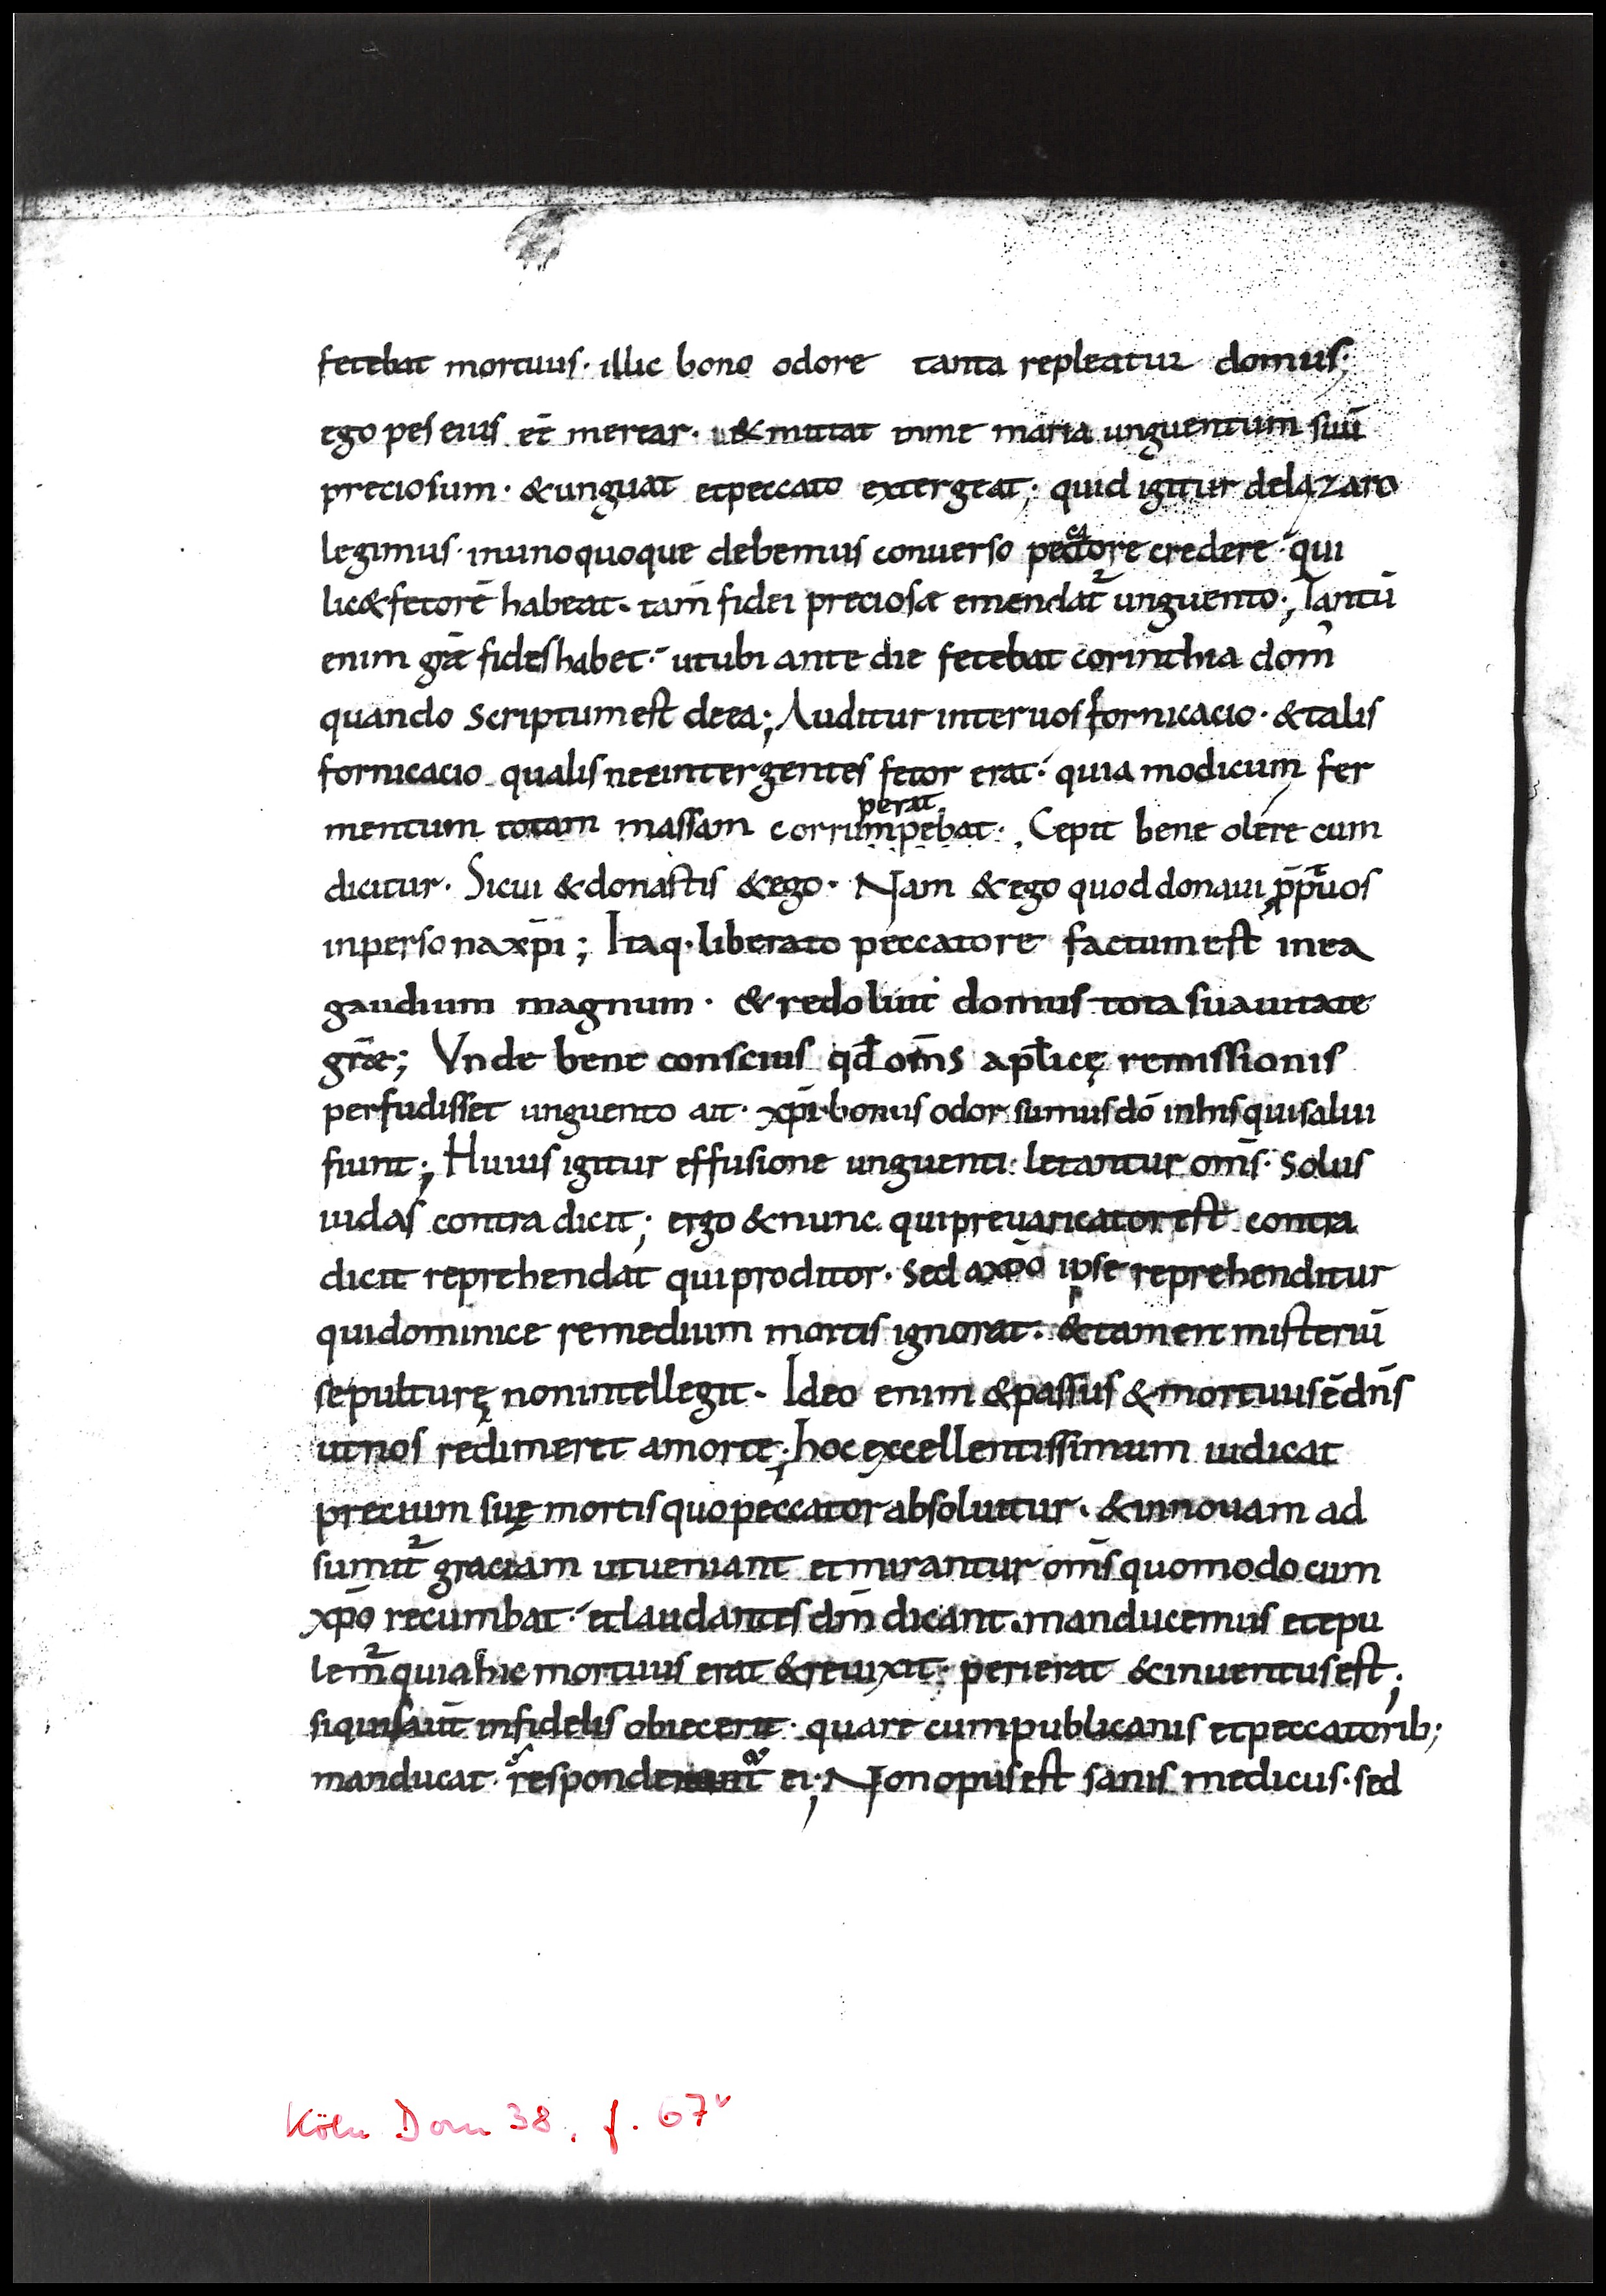 fetebat mortuus · illic bono odore tanta repleatur domus ;
ego pes eius et̄ merear · ut & mittat inme maria unguentum suū
preciosum · & unguat etpeccato extergeat ; quid igitur delazaro
legimus · inunoquoque debemus conuerso pectore credere · qui
lic& fetorē habeat · tam̄ fidei preciosæ emendat᷑ unguento ; Tantū
enim grā fides habet · utubi ante die fetebat corinthia dom̄
quando scriptum est deea ; Auditur interuos fornicacio · & talis
fornicacio qualis neeintergentes fetor erat · quia modicum fer
mentum totam massam corrumpebat perat · Cepit bene olere cum
dicitur · Sicui & donastis & ego · Nam & ego quod donaui p̄p̄uos
inpersona xp̄i ; Itaq · liberato peccatore factum est inea
gaudium magnum · & redoluit domus tota suauitate
grāe ; Vnde bene conscius qd̄ om̄s apl̄icę remissionis
perfudisset unguento ait · xp̄i bonus odor sumus dō inhis quisalui
fiunt ; Huius igitur effusione unguenti letantur om̄s · solus
iudas contra dicit ; ergo & nunc quipreuaricator est contra
dicit reprehendat quiproditor · sed axp̄o ipse reprehenditur
quidominice remedium mortis ignorat · & tamen misteriū
sepulturę nonintellegit · Ideo enim & passus & mortuus ē dn̄s
utnos redimeret amorte ; hoc excellentissimum iudicat
precium suę mortis quopeccator absoluitur · & innouam ad
sumit᷑ graciam utueniant etmirantur om̄s quomodo cum
xp̄o recumbat · etlaudantes dm̄ dicant · manducemus etepu
lem᷑ quiahic mortuus erat & reuixit · perierat & inuentus est ;
siquisaut̄ infidelis obiecerit · quare cumpublicanis etpeccatorib ;
manducat · ei ; Non opus est sanis medicus · sed
Köln Dom 38, f. 67v